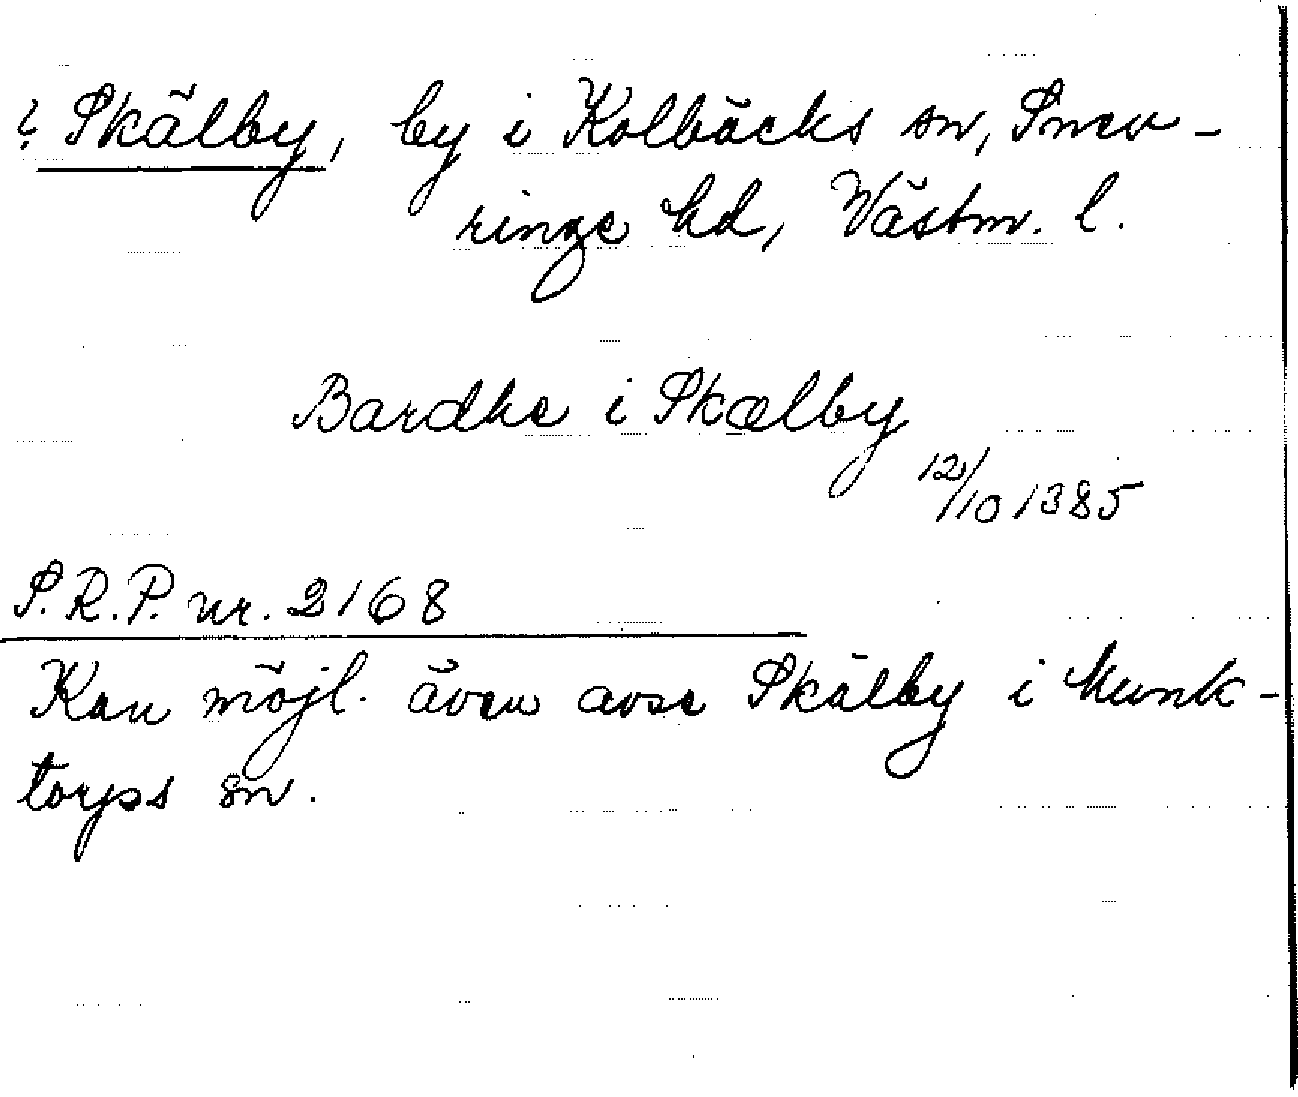 ? Skälby, by i Kolbäcks sn, Snev-
ringe hd, Västm. l.
Bardhe i Skælby
12/10 1385
S.R.P. nr. 2168
Kan möjl. även avse Skälby i Munk-
torps sn.